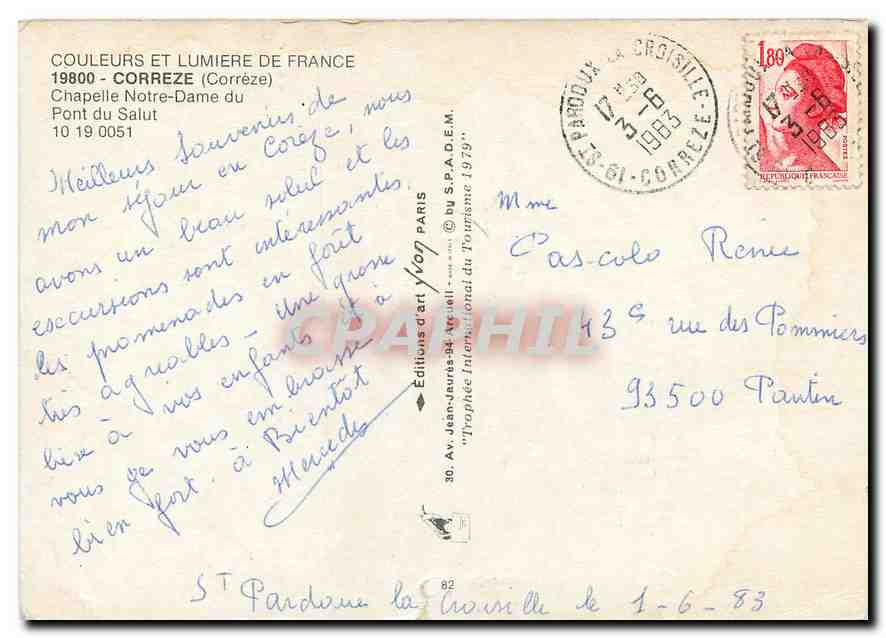 COULEURS ET LUMIERE DE FRANCE
19800 - CORREZE (Corrèze)
Chapelle Notre-Dame du
Pont du Salut
10 19 0051
Meilleurs souvenirs de
mon séjour en Corèze, nous
avons un beau soleil et les
excursions sont intéressantes,
les promenades en forêt
très agréables - Une grosse
bise à vos enfants et à
vous je vous embrasse
bien fort. à Bientôt
Mercedes
ST Pardoux la Croisille le 1-6-83
Editions d'art Yvon PARIS
30. Av. Jean-Jaurès-94 Arcueil - MADE IN ITALY © by S.P.A.D.E.M.
"Trophée International du Tourisme 1979"
82
ST PARDOUX LA CROISILLE
17 H 30
3 - 6
1983
19 - CORREZE
1,80
POSTES
REPUBLIQUE FRANCAISE
17 H
3 - 6
1983
Mme
Cas-colo Renée
43 rue des Pommiers
93500 Pantin
CPAPHIL